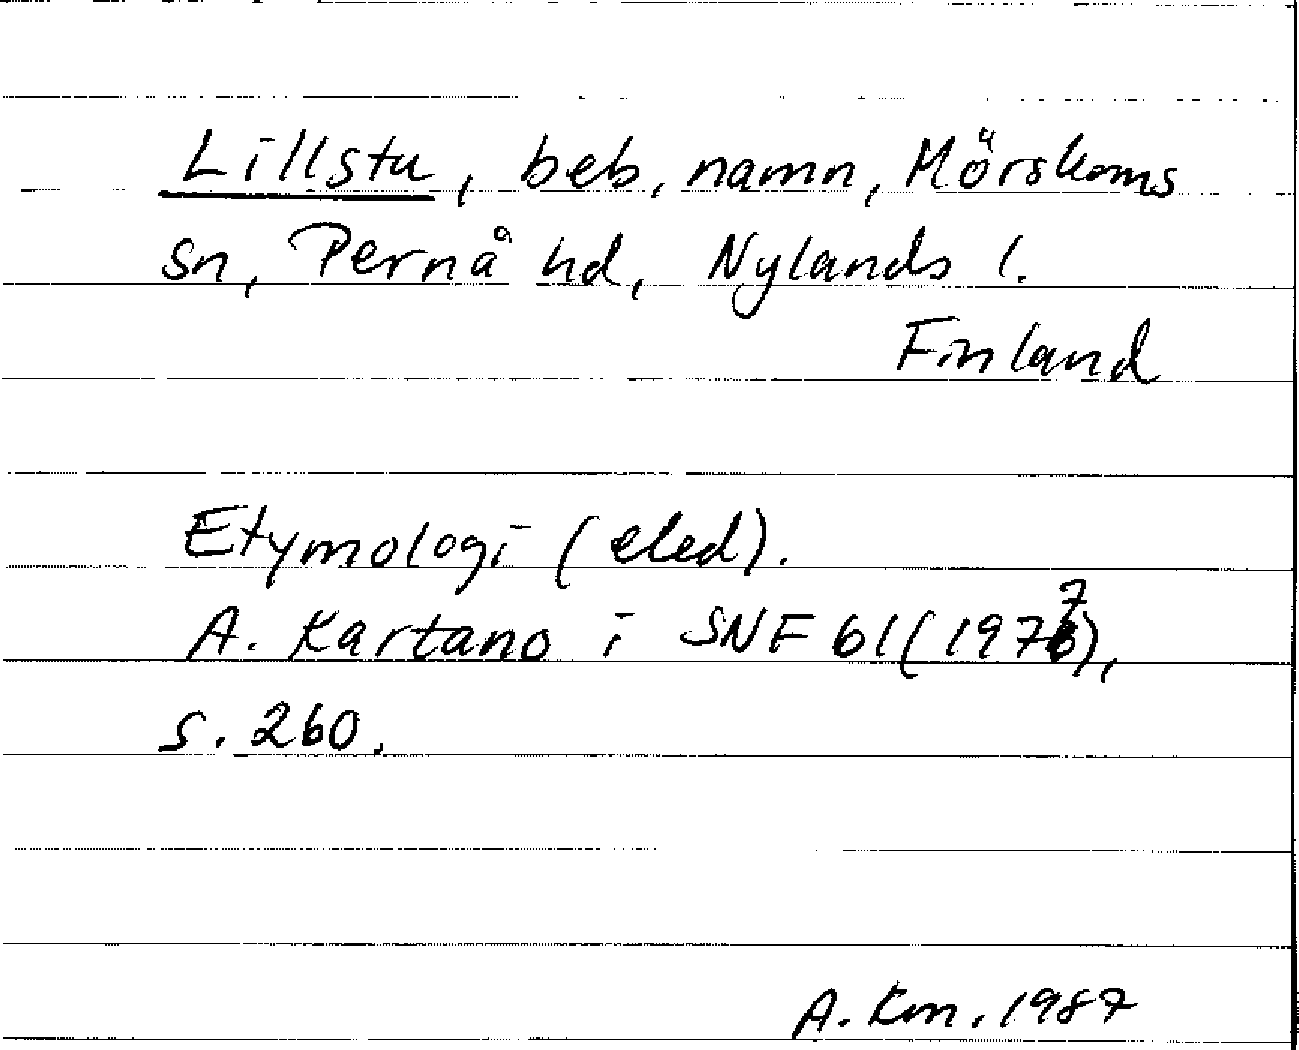 Lillstu, beb. namn, Mörskoms
sn, Pernå hd, Nylands l.
Finland
Etymologi (eled).
A. Kartano i SNF 61 (1977),
s. 260.
A. Km. 1987